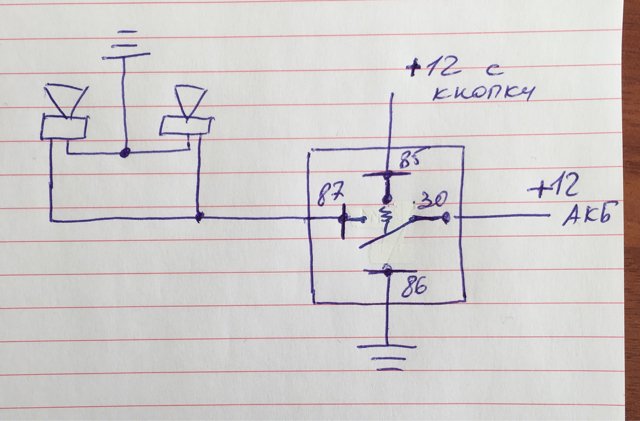 +12 с
кнопки
85
87
30
+12
АКБ
86